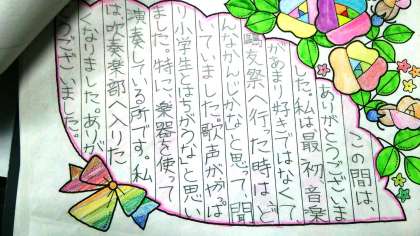 この間は、
ありがとうございま
した。私は最初、音楽
があまり好きではなくて
鷗友祭へ行った時はど
んなかんじかなと思って聞
いていました。歌声がやっぱ
り小学生とはちがうなと思い
ました。特に、楽器を使って
演奏している所です。私
は吹奏楽部へ入りた
くなりました。ありが
とうございました。